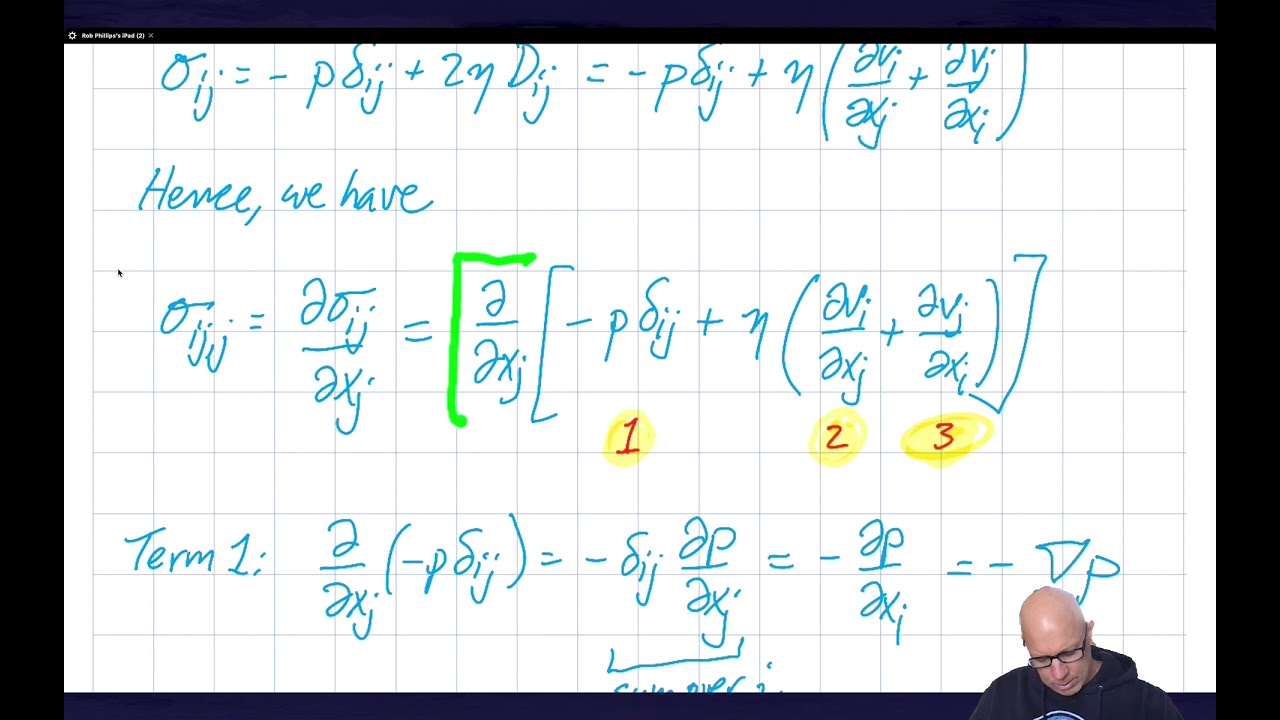 Rob Phillips's iPad (2) ×
σij = - p δij + 2η Dij = - p δij + η (∂vi/∂xj + ∂vj/∂xi)
Hence, we have
σij,j = ∂σij/∂xj = [∂/∂xj [- p δij + η (∂vi/∂xj + ∂vj/∂xi)]
1 2 3
Term 1: ∂/∂xj (-p δij) = - δij ∂p/∂xj = - ∂p/∂xi = - ∇p
sum over j